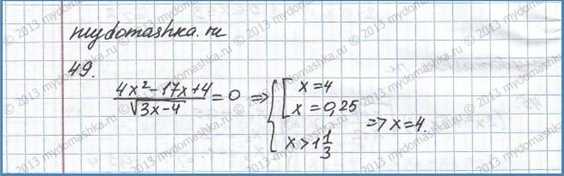 mydomashka.ru
49.
(4x²-17x+4)/√(3x-4) = 0 ⇒ { [ x=4
x=0,25
x>1 1/3 ⇒ x=4.
© 2013 mydomashka.ru